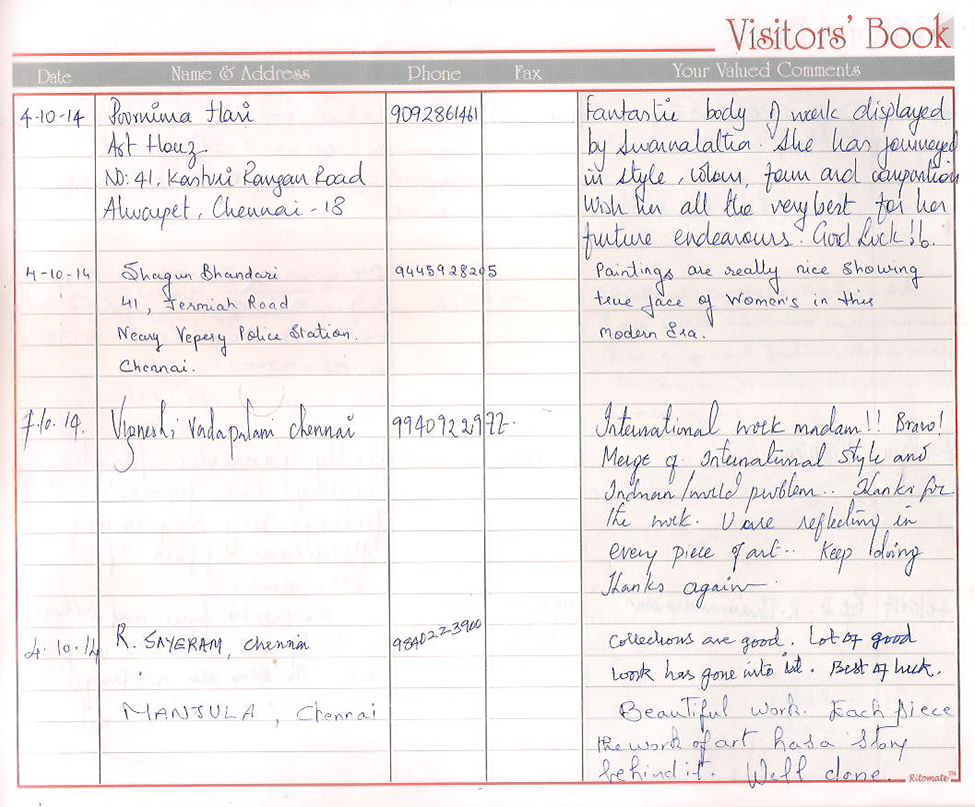 Visitors' Book
Date Name & Address Phone Fax Your Valued Comments
4-10-14 Poornima Hari 9092861461 Fantastic body of work displayed
Art Houz by Swarnalatha. She has journeyed
NO: 41, Kasturi Rangan Road in style, colour, form and composition
Alwarpet, Chennai - 18 Wish her all the very best for her
furture endeavours. Good Luck!!
4-10-14 Shagun Bhandari 9445928205 Paintings are really nice showing
41, Jermiah Road true face of Women's in this
Neary Vepery Police Station. Modern Era.
Chennai.
7.10.14. Vigneshi Vadapalani Chennai 9940922972. International work madam!! Bravo!
Merge of International style and
Indian/world problem.. Thanks for
the work. U are reflecting in
every piece of art.. Keep doing
Thanks again
4.10.14 R. SAYEERAM, Chennai 9840223900 Collections are good. Lot of good
work has gone into it. Best of luck.
MANJULA, Chennai Beautiful work. Each piece
the work of art has a story
behind it. Well done.
Ritomate™